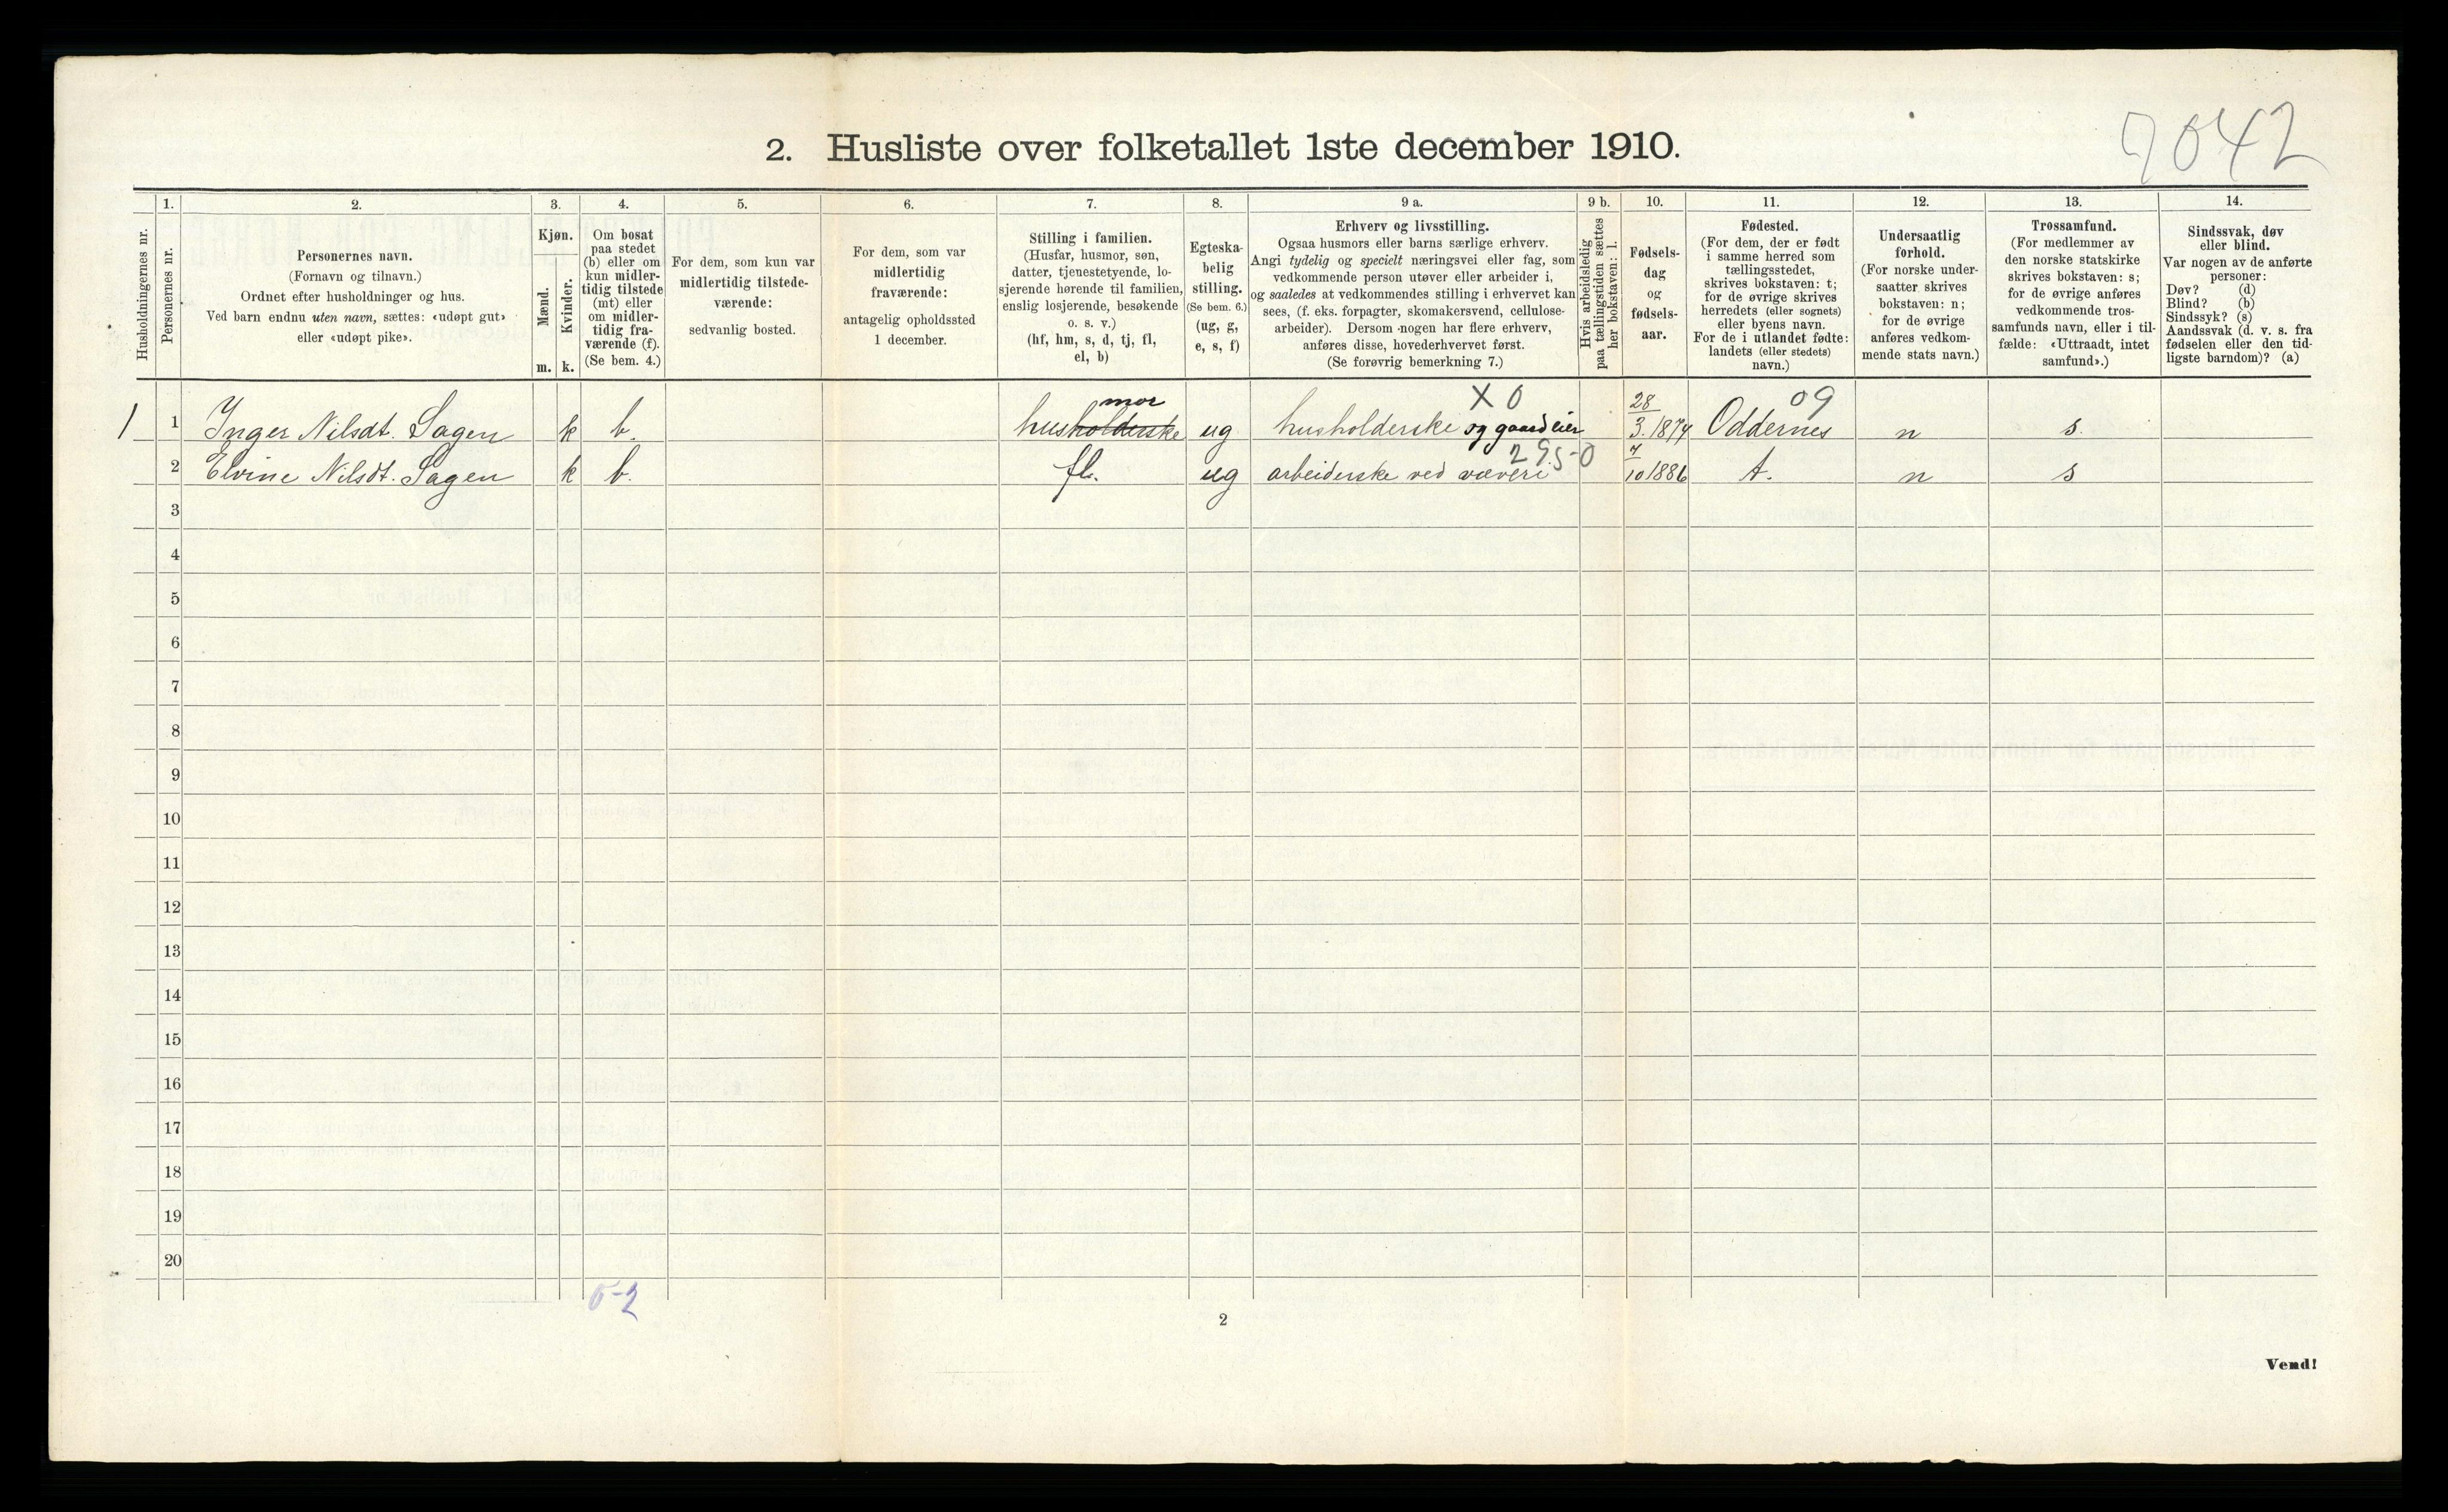 7042
2. Husliste over folketallet 1ste december 1910.
Husholdningernes nr.
1.
Personernes nr.
2.
Personernes navn.
(Fornavn og tilnavn.)
Ordnet efter husholdninger og hus.
Ved barn endnu uten navn, sættes: «udøpt gut»
eller «udøpt pike».
3.
Kjøn.
Mænd.
Kvinder.
m. k.
4.
Om bosat
paa stedet
(b) eller om
kun midler-
tidig tilstede
(mt) eller
om midler-
tidig fra-
værende (f).
(Se bem. 4.)
5.
For dem, som kun var
midlertidig tilstede-
værende:
sedvanlig bosted.
6.
For dem, som var
midlertidig
fraværende:
antagelig opholdssted
1 december.
7.
Stilling i familien.
(Husfar, husmor, søn,
datter, tjenestetyende, lo-
sjerende hørende til familien,
enslig losjerende, besøkende
o. s. v.)
(hf, hm, s, d, tj, fl,
el, b)
8.
Egteska-
belig
stilling.
(Se bem. 6.)
(ug, g,
e, s, f)
9 a.
Erhverv og livsstilling.
Ogsaa husmors eller barns særlige erhverv.
Angi tydelig og specielt næringsvei eller fag, som
vedkommende person utøver eller arbeider i,
og saaledes at vedkommendes stilling i erhvervet kan
sees, (f. eks. forpagter, skomakersvend, cellulose-
arbeider). Dersom nogen har flere erhverv,
anføres disse, hovederhvervet først.
(Se forøvrig bemerkning 7.)
9 b.
Hvis arbeidsledig
paa tællingstiden sættes
her bokstaven: l.
10.
Fødsels-
dag
og
fødsels-
aar.
11.
Fødested.
(For dem, der er født
i samme herred som
tællingsstedet,
skrives bokstaven: t;
for de øvrige skrives
herredets (eller sognets)
eller byens navn.
For de i utlandet fødte:
landets (eller stedets)
navn.)
12.
Undersaatlig
forhold.
(For norske under-
saatter skrives
bokstaven: n;
for de øvrige
anføres vedkom-
mende stats navn.)
13.
Trossamfund.
(For medlemmer av
den norske statskirke
skrives bokstaven: s;
for de øvrige anføres
vedkommende tros-
samfunds navn, eller i til-
fælde: «Uttraadt, intet
samfund».)
14.
Sindssvak, døv
eller blind.
Var nogen av de anførte
personer:
Døv? (d)
Blind? (b)
Sindssyk? (s)
Aandssvak (d. v. s. fra
fødselen eller den tid-
ligste barndom)? (a)
mor X 0 28 09
1 1 Inger Nilsdt. Sagen k b. husholderske ug husholderske og gaardeier 3. 1874 Oddernes n s.
2950 7
2 Elvine Nilsdt. Sagen k b. fl. ug arbeiderske ved væveri 10 1886 t. n s
3
4
5
6
7
8
9
10
11
12
13
14
15
16
17
18
19
20
0-2
2
Vend!